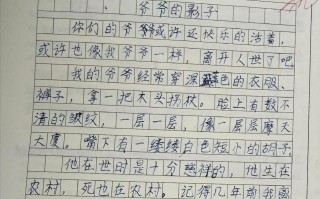 爷爷的影子
你们的爷爷或许还快乐的活着，
或许也像我爷爷一样，离开人世了吧
我的爷爷经常穿深蓝色的衣服、
裤子，拿一把木头拐杖。脸上有数不
清的皱纹，一层一层，像一层层摩天
大厦。嘴下有一缕缕白色短小的胡子
他在世时是十分慈祥的，他生在
农村，死也在农村。记得几年前我离